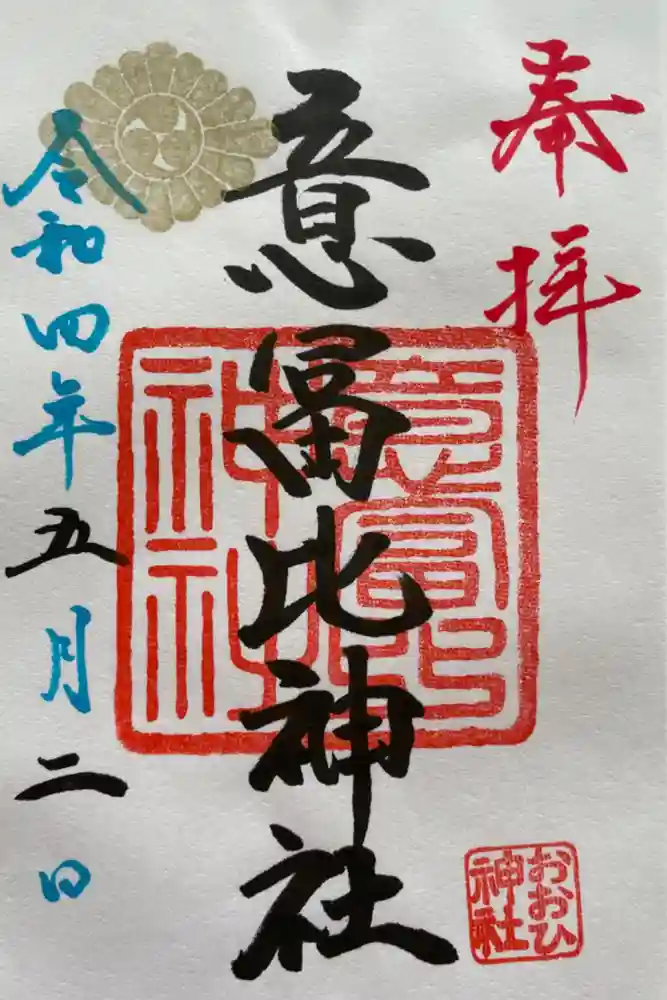 奉拝
意冨比神社
令和四年五月二日
意富比
神社
おおひ
神社